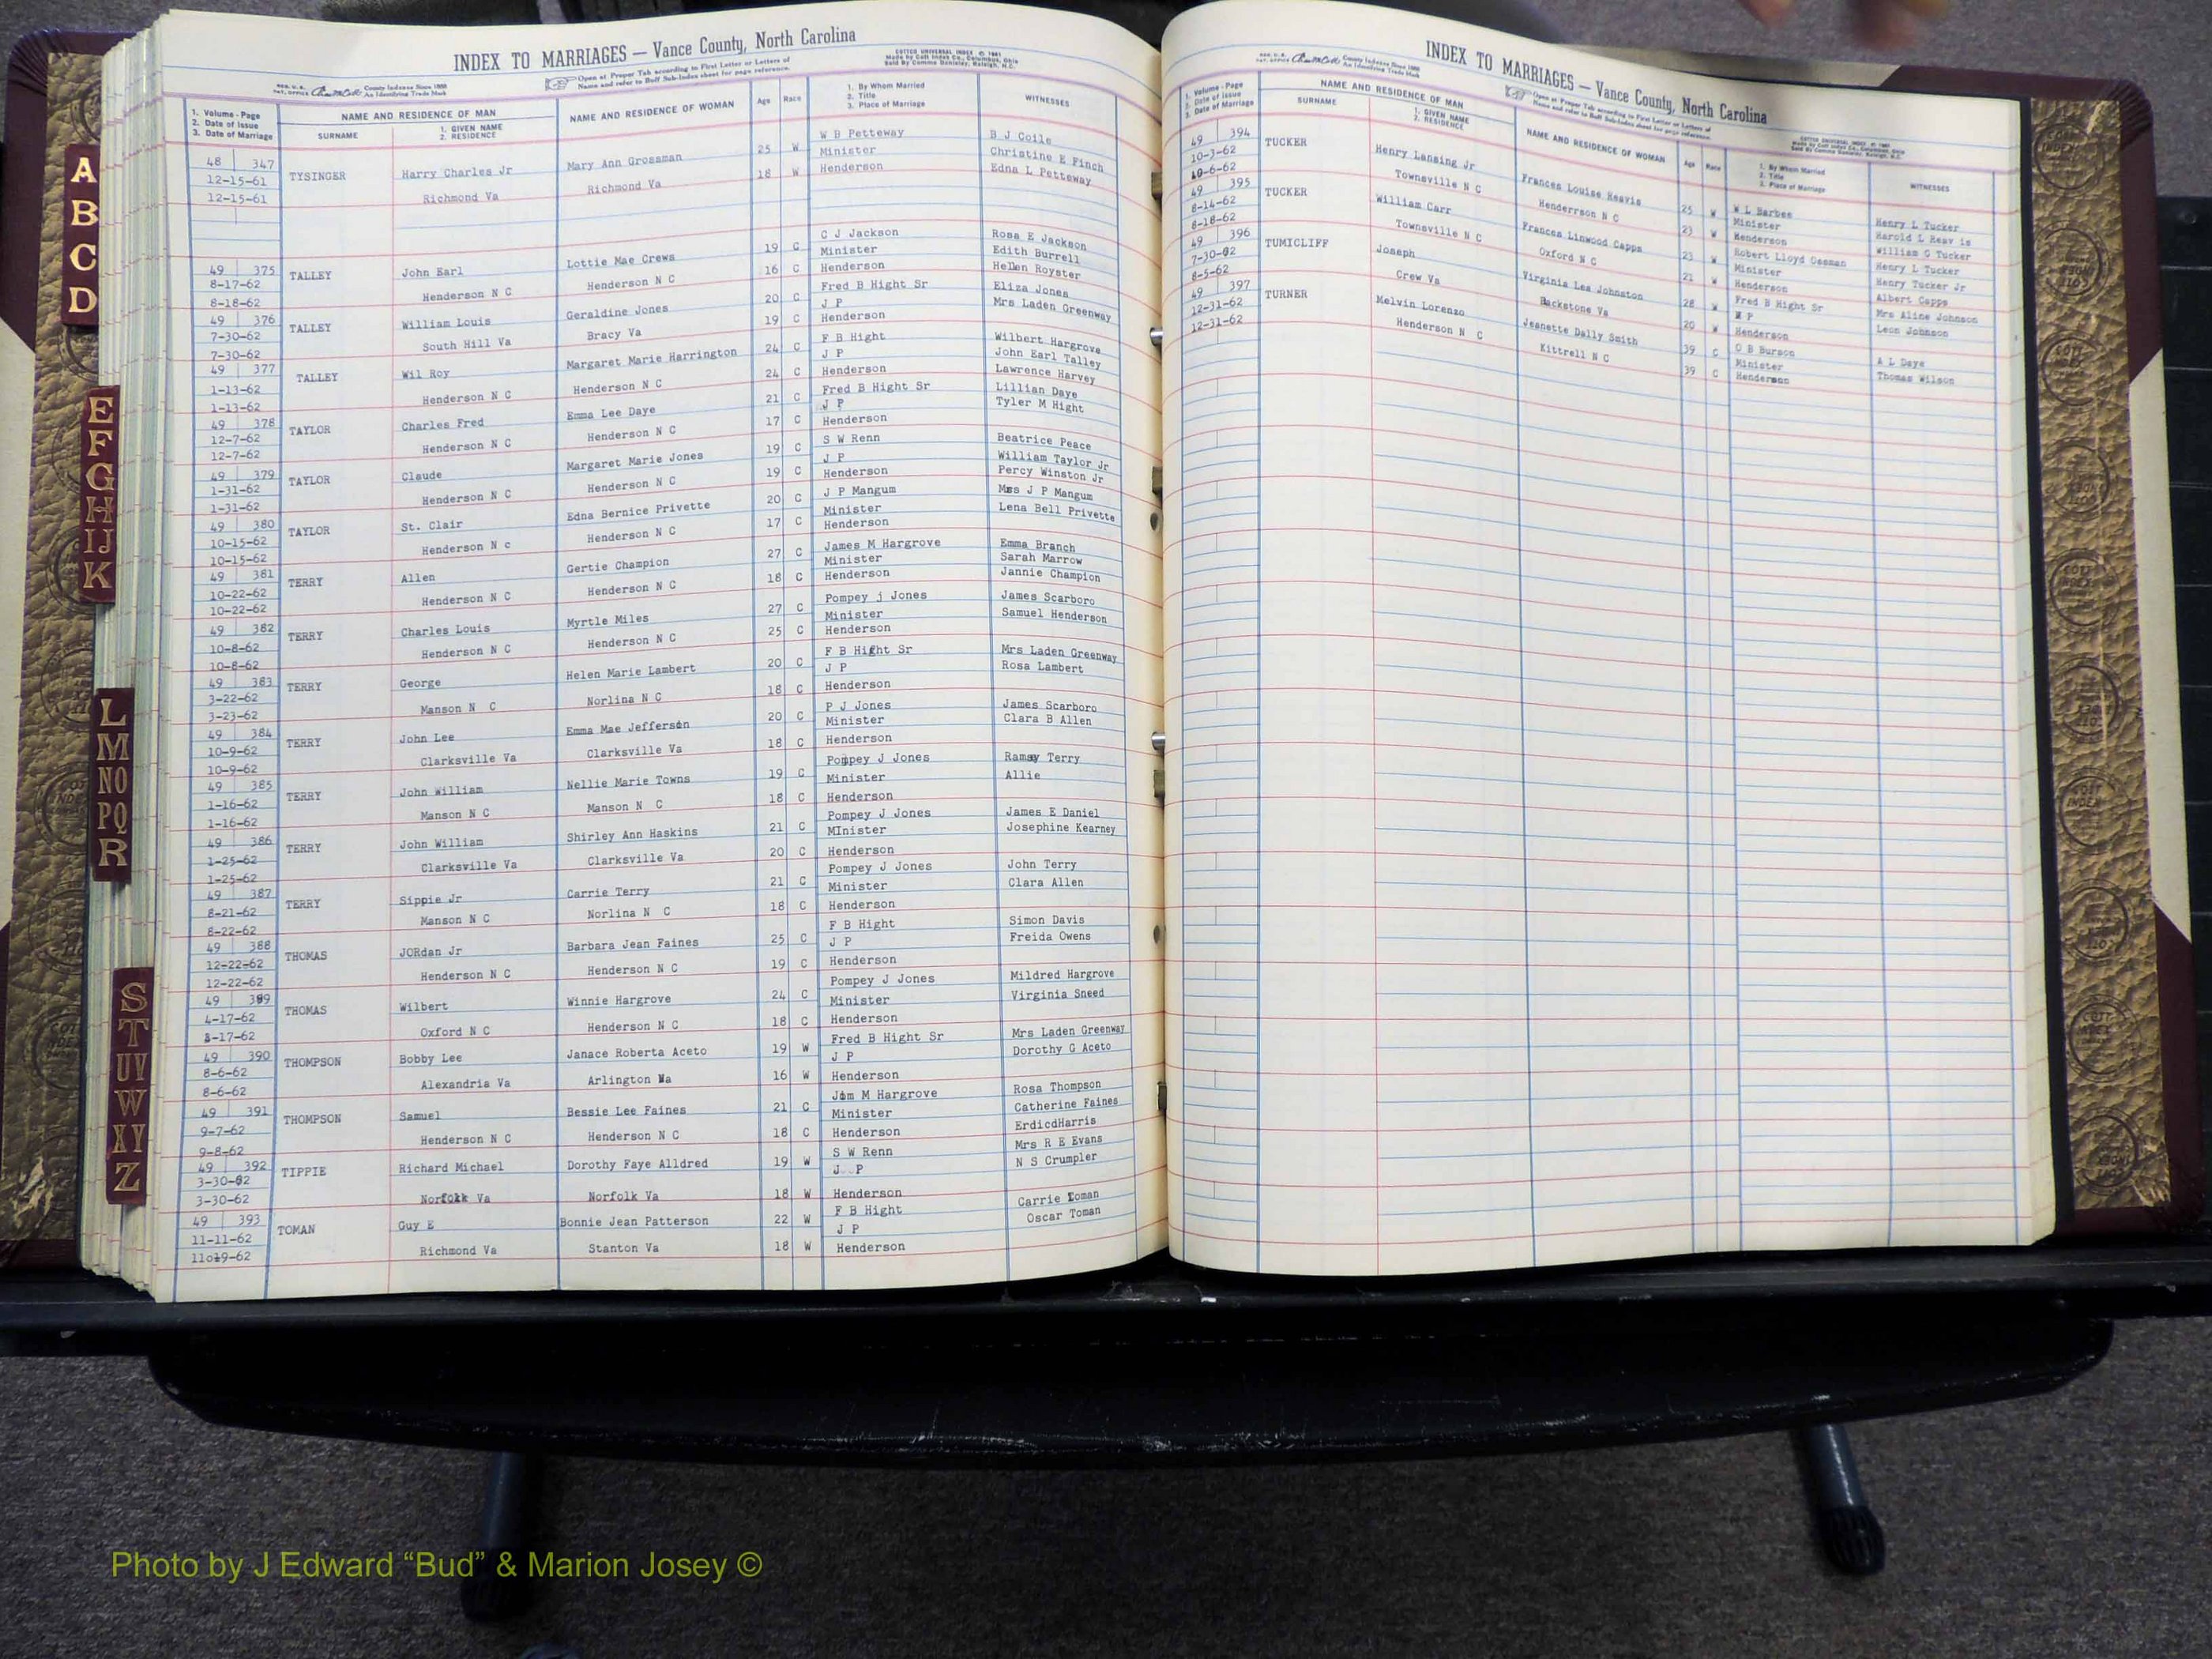 INDEX TO MARRIAGES — Vance County, North Carolina
Open at Proper Tab according to First Letter or Letters of
Name and refer to Buff Sub-Index sheet for page reference.
COTTED UNIVERSAL INDEX © 1961
Made by Cott Index Co., Columbus, Ohio
REG. U.S. PAT. OFFICE County Indexes Since 1888
An Identifying Trade Mark
1. Volume - Page
2. Date of Issue
3. Date of Marriage
NAME AND RESIDENCE OF MAN
SURNAME 1. GIVEN NAME 2. RESIDENCE
NAME AND RESIDENCE OF WOMAN Age Race
1. By Whom Married
2. Title
3. Place of Marriage
WITNESSES
48 347 TYSINGER Harry Charles Jr Mary Ann Grossman 25 W W B Petteway B J Coile
12-15-61 Richmond Va Richmond Va 18 W Minister Christine E Finch
12-15-61 Henderson Edna L Petteway
49 375 TALLEY John Earl Lottie Mae Crews 19 C C J Jackson Rosa E Jackson
8-17-62 Henderson N C Henderson N C 16 C Minister Edith Burrell
8-18-62 Henderson Hellen Royster
49 376 TALLEY William Louis Geraldine Jones 20 C Fred B Hight Sr Eliza Jones
7-30-62 South Hill Va Bracy Va 19 C J P Mrs Laden Greenway
7-30-62 Henderson
49 377 TALLEY Wil Roy Margaret Marie Harrington 24 C F B Hight Wilbert Hargrove
1-13-62 Henderson N C Henderson N C 24 C J P John Earl Talley
1-13-62 Henderson Lawrence Harvey
49 378 TAYLOR Charles Fred Emma Lee Daye 21 C Fred B Hight Sr Lillian Daye
12-7-62 Henderson N C Henderson N C 17 C J P Tyler M Hight
12-7-62 Henderson
49 379 TAYLOR Claude Margaret Marie Jones 19 C S W Renn Beatrice Peace
1-31-62 Henderson N C Henderson N C 19 C J P William Taylor Jr
1-31-62 Henderson Percy Winston Jr
49 380 TAYLOR St. Clair Edna Bernice Privette 20 C J P Mangum Mrs J P Mangum
10-15-62 Henderson N c Henderson N C 17 C Minister Lena Bell Privette
10-15-62 Henderson
49 381 TERRY Allen Gertie Champion 27 C James M Hargrove Emma Branch
10-22-62 Henderson N C Henderson N C 18 C Minister Sarah Marrow
10-22-62 Henderson Jannie Champion
49 382 TERRY Charles Louis Myrtle Miles 27 C Pompey j Jones James Scarboro
10-8-62 Henderson N C Henderson N C 25 C Minister Samuel Henderson
10-8-62 Henderson
49 383 TERRY George Helen Marie Lambert 20 C F B Hight Sr Mrs Laden Greenway
3-22-62 Manson N C Norlina N C 18 C J P Rosa Lambert
3-23-62 Henderson
49 384 TERRY John Lee Emma Mae Jefferson 20 C P J Jones James Scarboro
10-9-62 Clarksville Va Clarksville Va 18 C Minister Clara B Allen
10-9-62 Henderson
49 385 TERRY John William Nellie Marie Towns 19 C Pompey J Jones Ramsy Terry
1-16-62 Manson N C Manson N C 18 C Minister Allie
1-16-62 Henderson
49 386 TERRY John William Shirley Ann Haskins 21 C Pompey J Jones James E Daniel
1-25-62 Clarksville Va Clarksville Va 20 C MInister Josephine Kearney
1-25-62 Henderson
49 387 TERRY Sippie Jr Carrie Terry 21 C Pompey J Jones John Terry
8-21-62 Manson N C Norlina N C 18 C Minister Clara Allen
8-22-62 Henderson
49 388 THOMAS JORdan Jr Barbara Jean Faines 25 C F B Hight Simon Davis
12-22-62 Henderson N C Henderson N C 19 C J P Freida Owens
12-22-62 Henderson
49 389 THOMAS Wilbert Winnie Hargrove 24 C Pompey J Jones Mildred Hargrove
4-17-62 Oxford N C Henderson N C 18 C Minister Virginia Sneed
-17-62 Henderson
49 390 THOMPSON Bobby Lee Janace Roberta Aceto 19 W Fred B Hight Sr Mrs Laden Greenway
8-6-62 Alexandria Va Arlington Va 16 W J P Dorothy G Aceto
8-6-62 Henderson
49 391 THOMPSON Samuel Bessie Lee Faines 21 C Jam M Hargrove Rosa Thompson
9-7-62 Henderson N C Henderson N C 18 C Minister Catherine Faines
9-8-62 Henderson ErdicdHarris
49 392 TIPPIE Richard Michael Dorothy Faye Alldred 19 W S W Renn Mrs R E Evans
3-30-62 Norfolk Va Norfolk Va 18 W J P N S Crumpler
3-30-62 Henderson
49 393 TOMAN Guy E Bonnie Jean Patterson 22 W F B Hight Carrie Toman
11-11-62 Richmond Va Stanton Va 18 W J P Oscar Toman
11o19-62 Henderson
INDEX TO MARRIAGES — Vance County, North Carolina
Open at Proper Tab according to First Letter or Letters of
Name and refer to Buff Sub-Index sheet for page reference.
County Indexes Since 1888
An Identifying Trade Mark
1. Volume - Page
2. Date of Issue
3. Date of Marriage
NAME AND RESIDENCE OF MAN
SURNAME 1. GIVEN NAME 2. RESIDENCE
NAME AND RESIDENCE OF WOMAN Age Race
1. By Whom Married
2. Title
3. Place of Marriage
WITNESSES
49 394 TUCKER Henry Lansing Jr Frances Louise Reavis 25 W W L Barbee Henry L Tucker
10-3-62 Townsville N C Henderrson N C 23 W Minister Harold L Reav is
10-6-62 Henderson William G Tucker
49 395 TUCKER William Carr Frances Linwood Capps 23 W Robert Lloyd Ossman Henry L Tucker
8-14-62 Townsville N C Oxford N C 21 W Minister Henry Tucker Jr
8-18-62 Henderson Albert Capps
49 396 TUMICLIFF Joseph Virginia Lea Johnston 28 W Fred B Hight Sr Mrs Aline Johnson
7-30-62 Crew Va Backstone Va 20 W P Leon Johnson
8-5-62 Henderson
49 397 TURNER Melvin Lorenzo Jeanette Dally Smith 39 C O B Burson A L Daye
12-31-62 Henderson N C Kittrell N C 39 C Minister Thomas Wilson
12-31-62 Henderson
A
B
C
D
E
F
G
H
IJ
K
L
M
NO
PQ
R
S
T
UV
W
XY
Z
Photo by J Edward “Bud” & Marion Josey ©